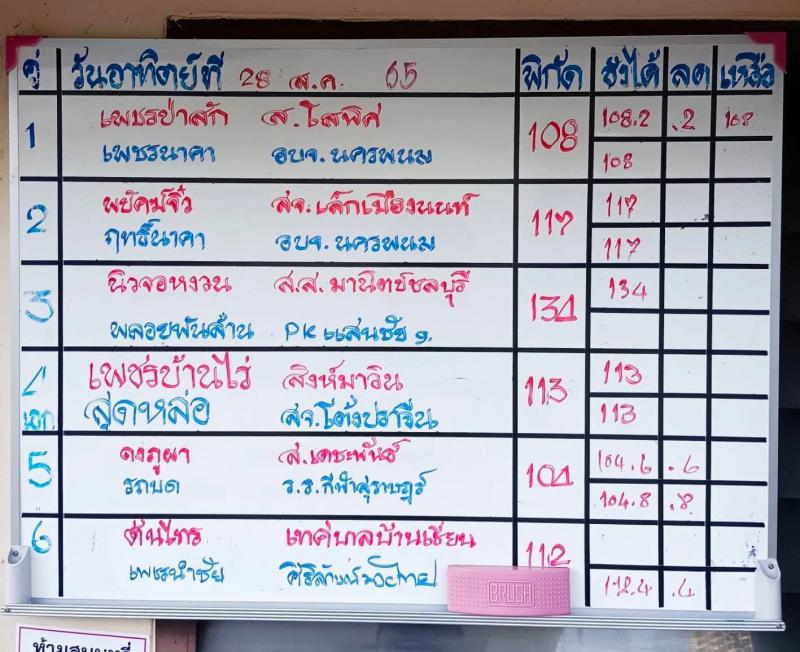 คู่ วันอาทิตย์ที่ 28 ส.ค. 65 พิกัด ชั่งได้ ลด เหลือ
1 เพชรป่าสัก ส.โสพิศ 108 108.2 .2 108
เพชรนาคา อบจ.นครพนม 108
2 พยัคฆ์จิ๋ว สจ.เล็กเมืองนนท์ 117 117
ฤทธิ์นาคา อบจ.นครพนม 117
3 นิวจอหงวน ส.ส.มานิตย์ชลบุรี 134 134
พลอยพันล้าน PK แสนชัย ฯ
4 เพชรบ้านไร่ สิงห์มาวิน 113 113
เอก สุดหล่อ สจ.โต้งปราจีน 113
5 ดงภูผา ส.เดชะพันธ์ 104 104.6 .6
รถบด ร.ร.กีฬาสุราษฎร์ 104.8 .8
6 ต้นไทร เทศบาลบ้านเชียน 112
เพชรนำชัย 112.4 .4
BRUSH